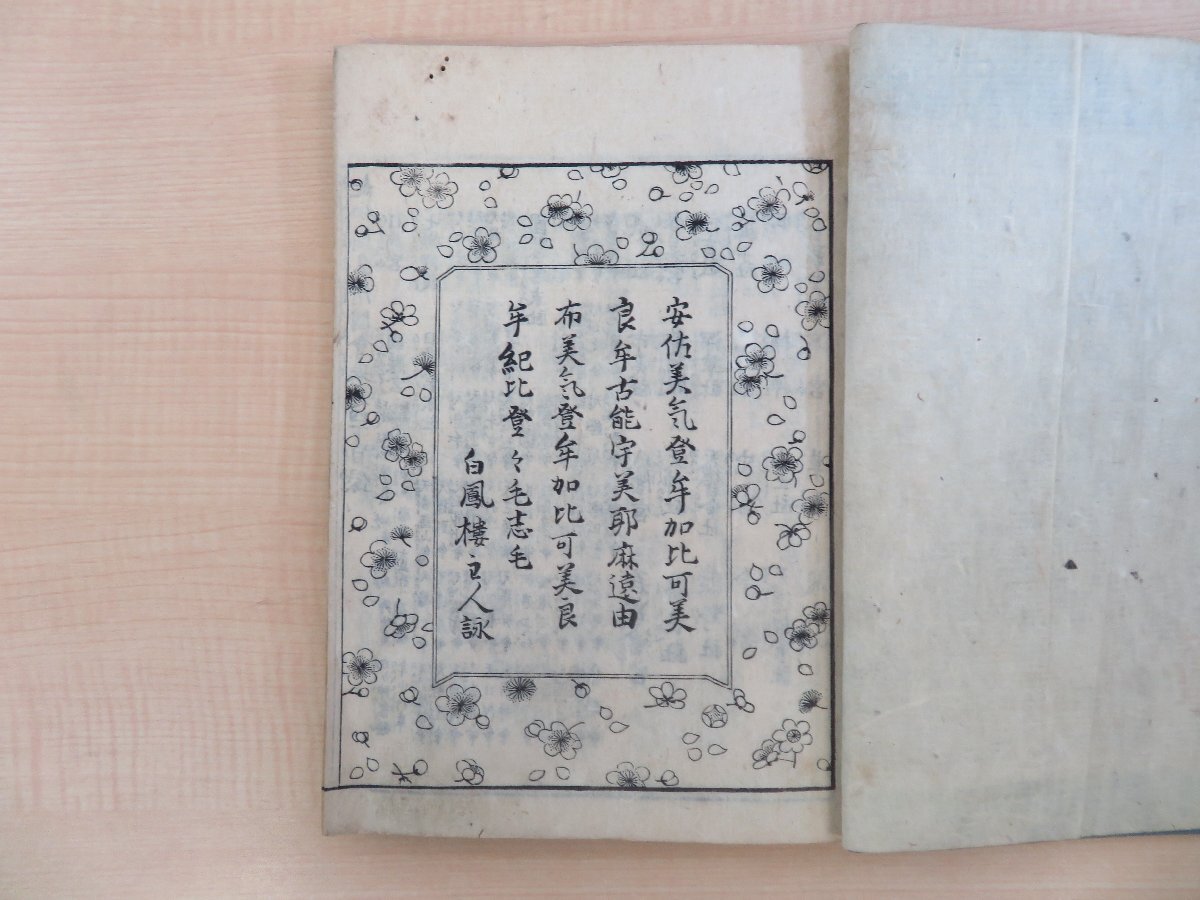 安佐美气登牟加比可美
良牟古能宇美耶麻遠由
布美气登牟加比可美良
牟紀比登々毛志毛
白鳳樓主人詠